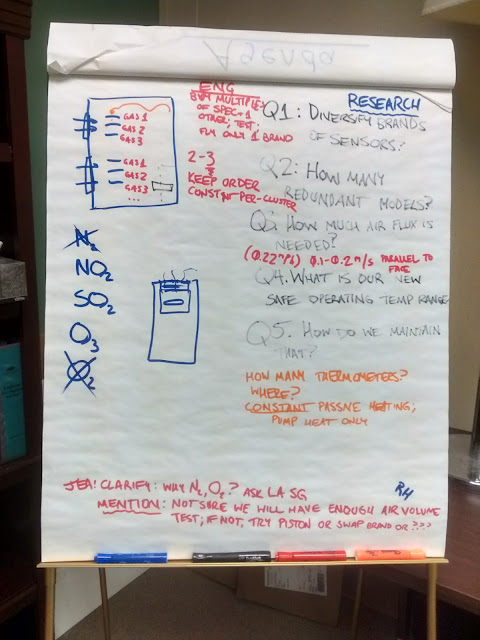 Agenda
ENG
BUY MULTIPLE
OF SPEC + 1
OTHER; TEST;
FLY ONLY 1 BRAND
RESEARCH
Q1: DIVERSIFY BRANDS
OF SENSORS?
GAS 1
GAS 2
GAS 3
...
GAS 1
GAS 2
GAS 3
...
2-3
KEEP ORDER
CONSTANT PER-CLUSTER
Q2: HOW MANY
REDUNDANT MODELS?
Q3: HOW MUCH AIR FLUX IS
NEEDED?
(0.22 m/s) 0.1-0.2 m/s PARALLEL TO
FACE
Q4. WHAT IS OUR NEW
SAFE OPERATING TEMP RANGE
Q5. HOW DO WE MAINTAIN
THAT?
N2
NO2
SO2
O3
O2
HOW MANY THERMOMETERS?
WHERE?
CONSTANT PASSIVE HEATING;
PUMP HEAT ONLY
CLARIFY: WHY N2, O2? ASK LA SG
RH
MENTION: NOT SURE WE WILL HAVE ENOUGH AIR VOLUME
TEST; IF NOT, TRY PISTON OR SWAP BRAND OR ???